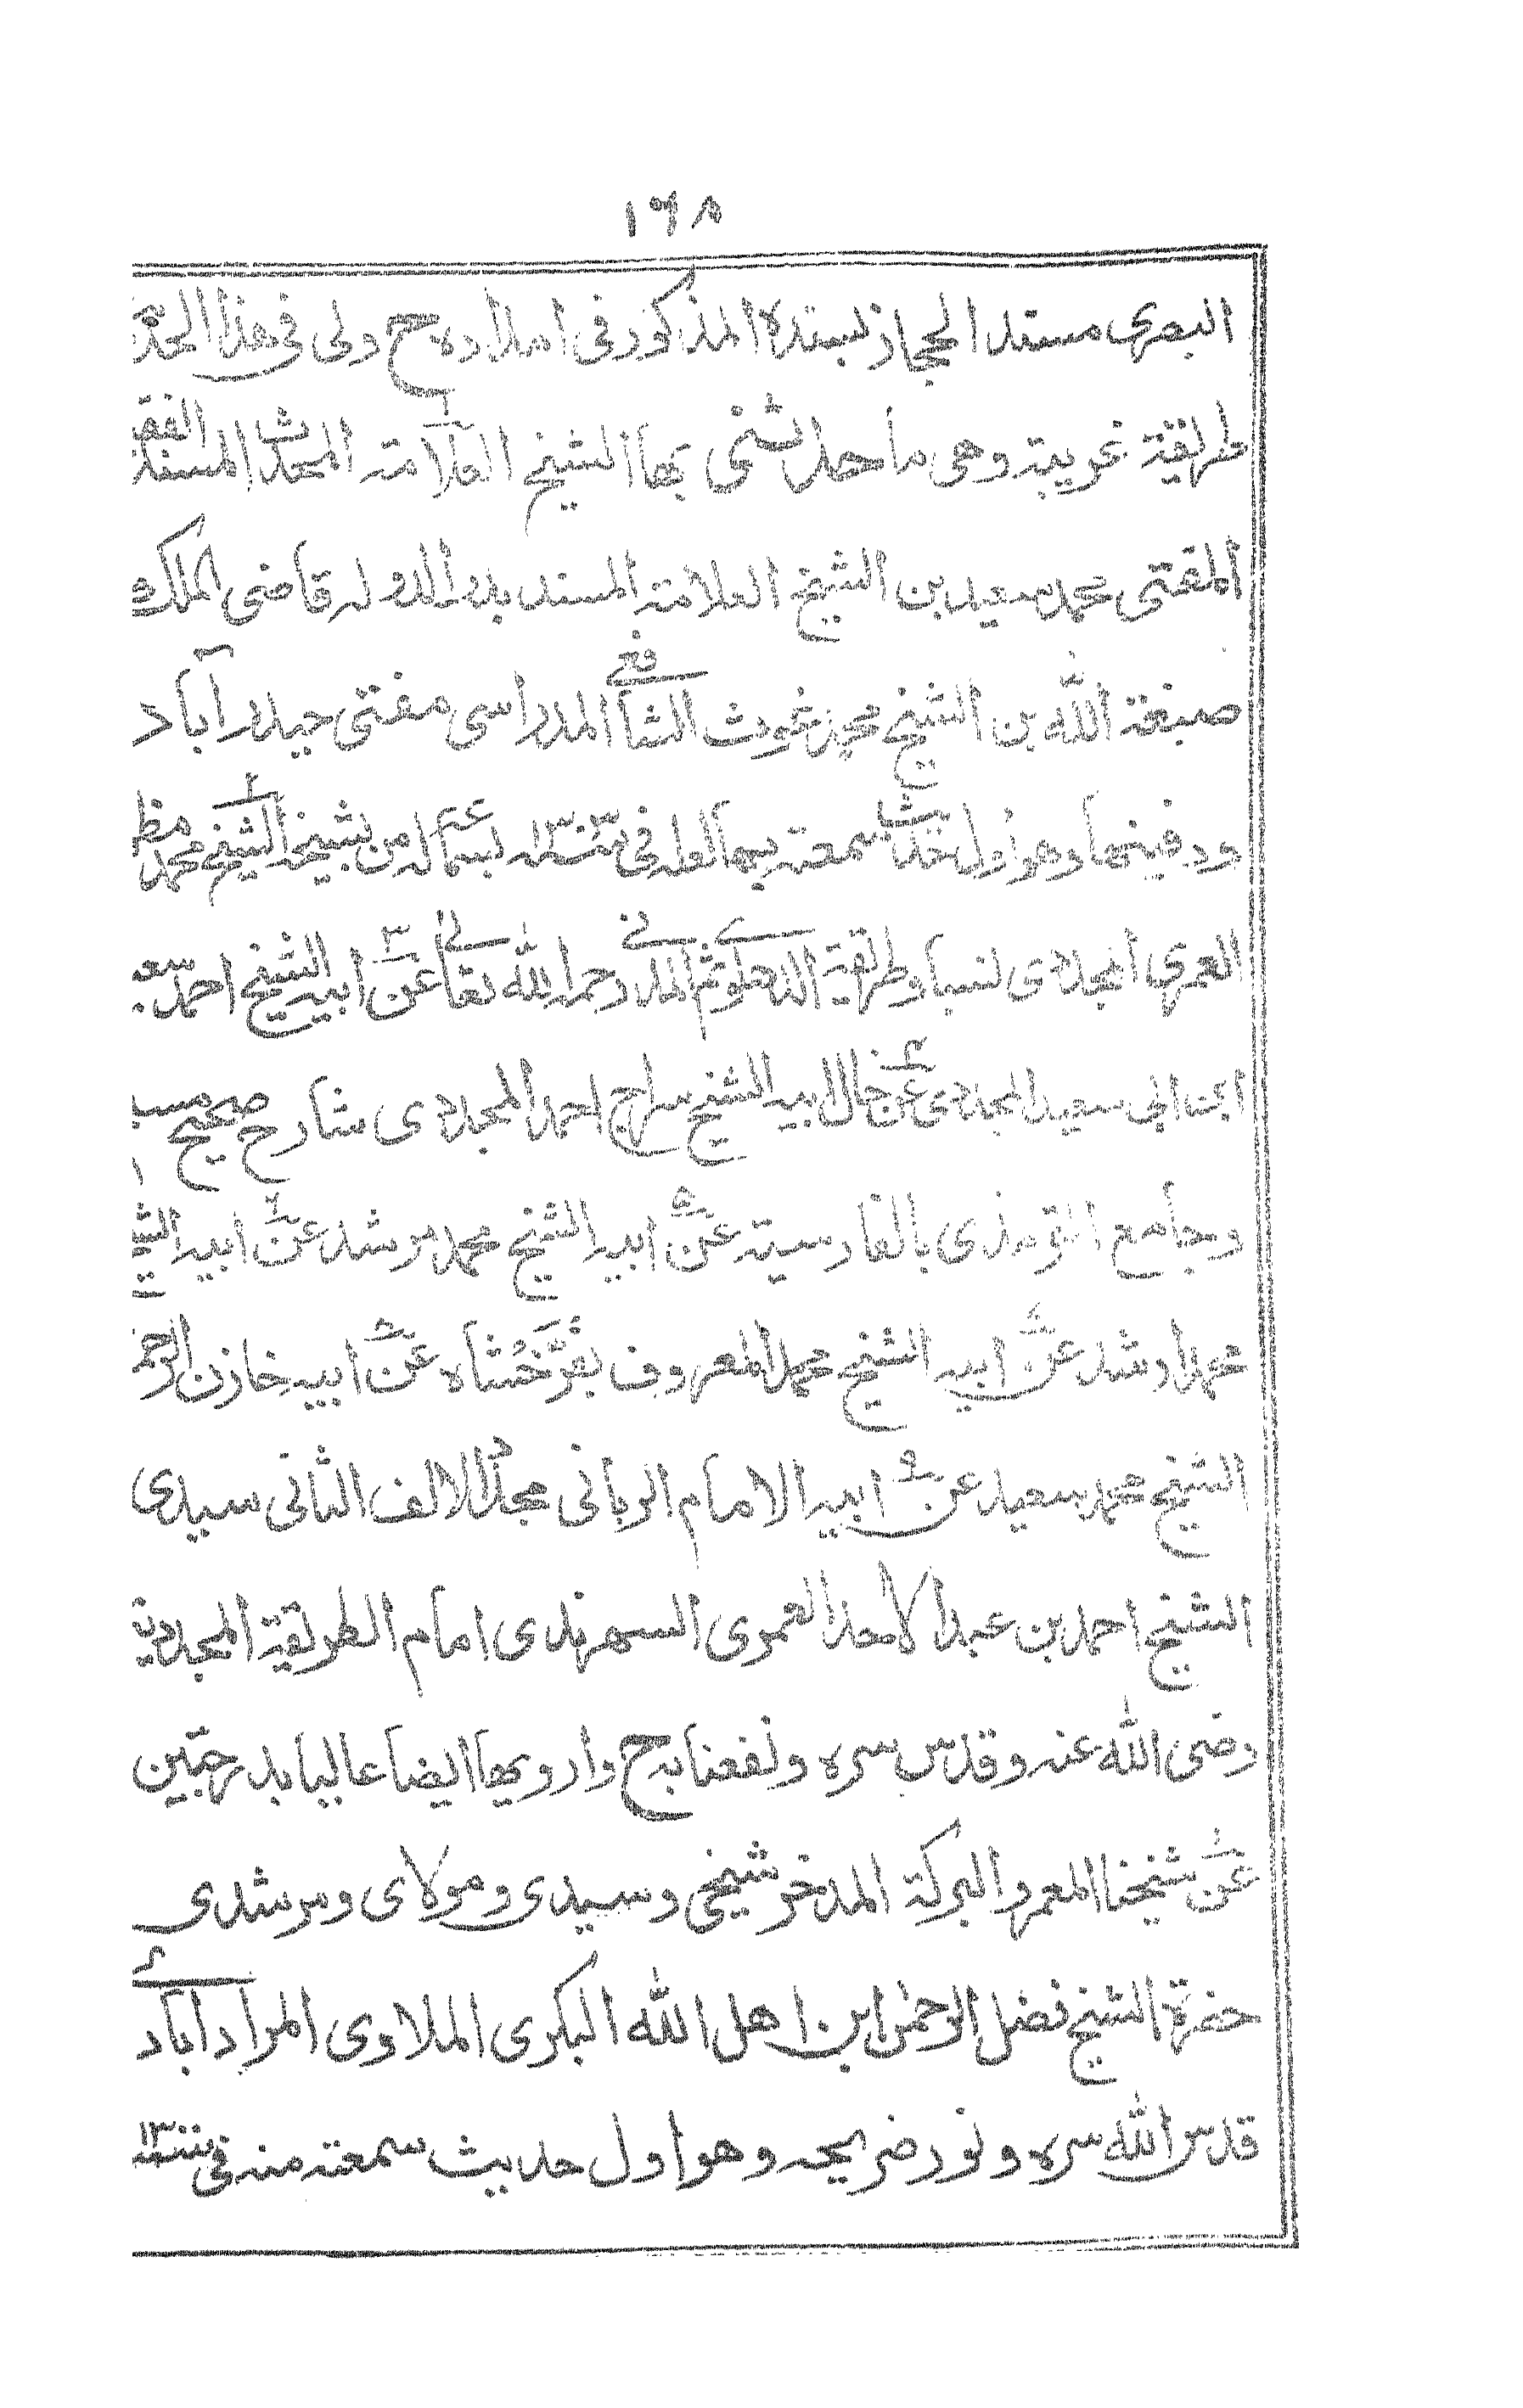 ١٦٨
البصري مسند الحجاز بسنده المذكور في امداده ح ولى في هذا الحديث
طريقة غريبة وهى ما حدثنى بها الشيخ العلامة المحدث المسند الفقيه
المفتى محمد سعيد بن الشيخ العلامة المسند بدر الدوله قاضى الملك
صبغة الله بن الشيخ محمد غوث الشافعي المدراسى مفتى حيدرآباد
ودفينها وهو اول حديث سمعته بها في سنة ١٣٠٣ بسماعه من شيخه الشيخ محمد مظهر
العمرى المجددى نسبا وطريقة الدهلوي ثم المدني رحمه الله تعالى عن ابيه الشيخ احمد سعيد
ابن ابى سعيد المجددى عن خال ابيه الشيخ سراج احمد المجددى شارح صحيح مسلم
وجامع الترمذى بالفارسية عن ابيه الشيخ محمد مرشد عن ابيه الشيخ
محمد ارشد عن ابيه الشيخ محمد المعروف بفرّخشاه عن ابيه خازن الرحمة
الشيخ محمد سعيد عن ابيه الامام الربانى مجدد الالف الثانى سيدى
الشيخ احمد بن عبد الاحد العمرى السهرندى امام الطريقة المجددية
رضى الله عنه وقدس سره ونفعنا به ح وارويها ايضا عاليا بدرجتين
عن شيخنا المعمر والبركة المدخر شيخى وسيدى ومولاى ومرشدى
حضرة الشيخ فضل الرحمن ابن اهل الله البكرى الملاوى المرادآبادي
قدس الله سره ونور ضريحه وهو اول حديث سمعته منه في سنة